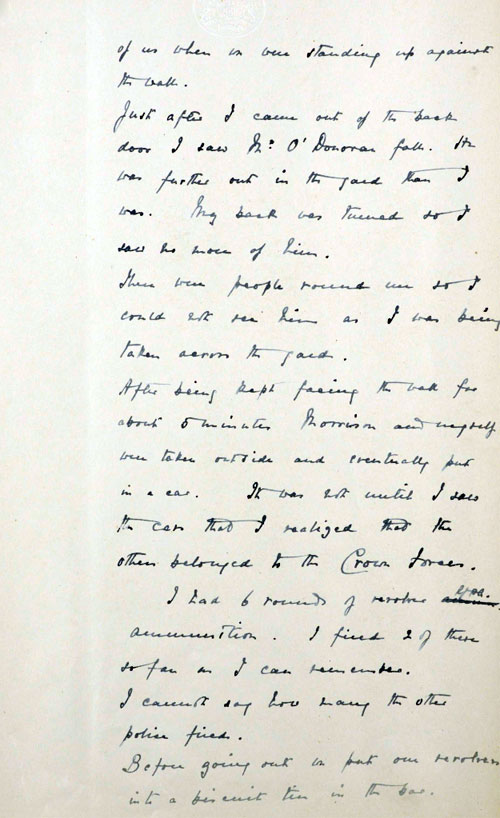 of us when we were standing up against
the wall.
Just after I came out of the back
door I saw Mr O'Donovan fall. He
was further out in the yard than I
was. My back was turned so I
saw no more of him.
There were people round me so I
could not see him as I was being
taken across the yard.
After being kept facing the wall for
about 5 minutes Morrison and myself
were taken outside and eventually put
in a car. It was not until I saw
the cars that I realized that the
others belonged to the Crown Forces.
I had 6 rounds of revolver
ammunition. I fired 2 of these
so far as I can remember.
I cannot say how many the other
police fired.
Before going out we put our revolvers
into a biscuit tin in the bar.